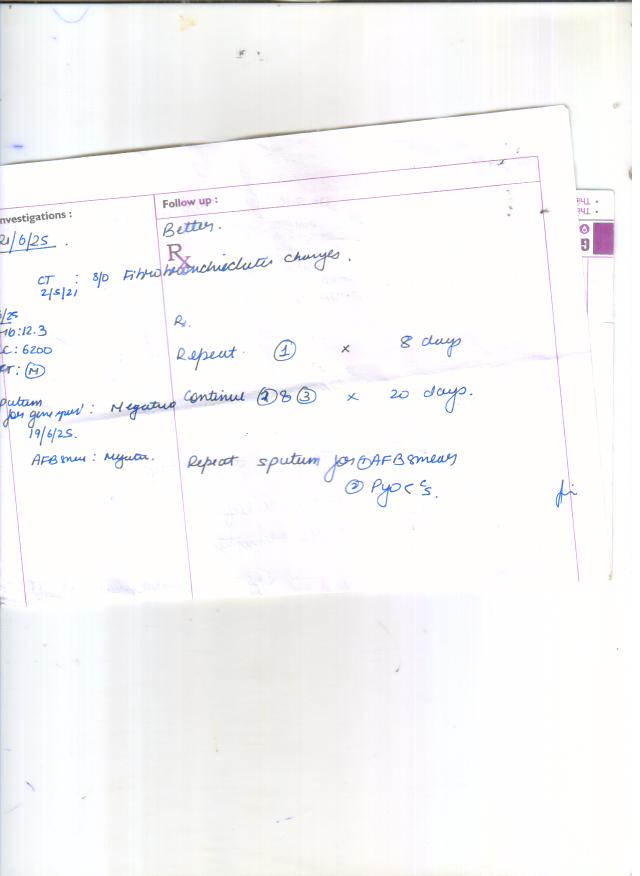 nvestigations :
21/6/25.
CT : S/O Fibrobronchiectatic changes.
2/5/21
/25
Hb: 12.3
C: 6200
FT: (M)
putum
for gene xpert : Negative
19/6/25.
AFB smear : Negative.
Follow up :
Better.
Rx
Rx.
Repeat (1) x 8 days
Continue (2) & (3) x 20 days.
Repeat sputum for (1) AFB smear
(2) Pyo C/S.